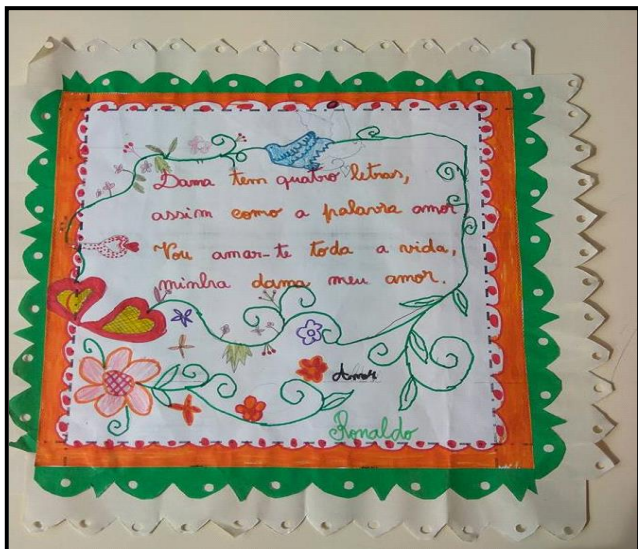 Dama tem quatro letras,
assim como a palavra amor
Vou amar-te toda a vida,
minha dama meu amor.
Amor
Ronaldo